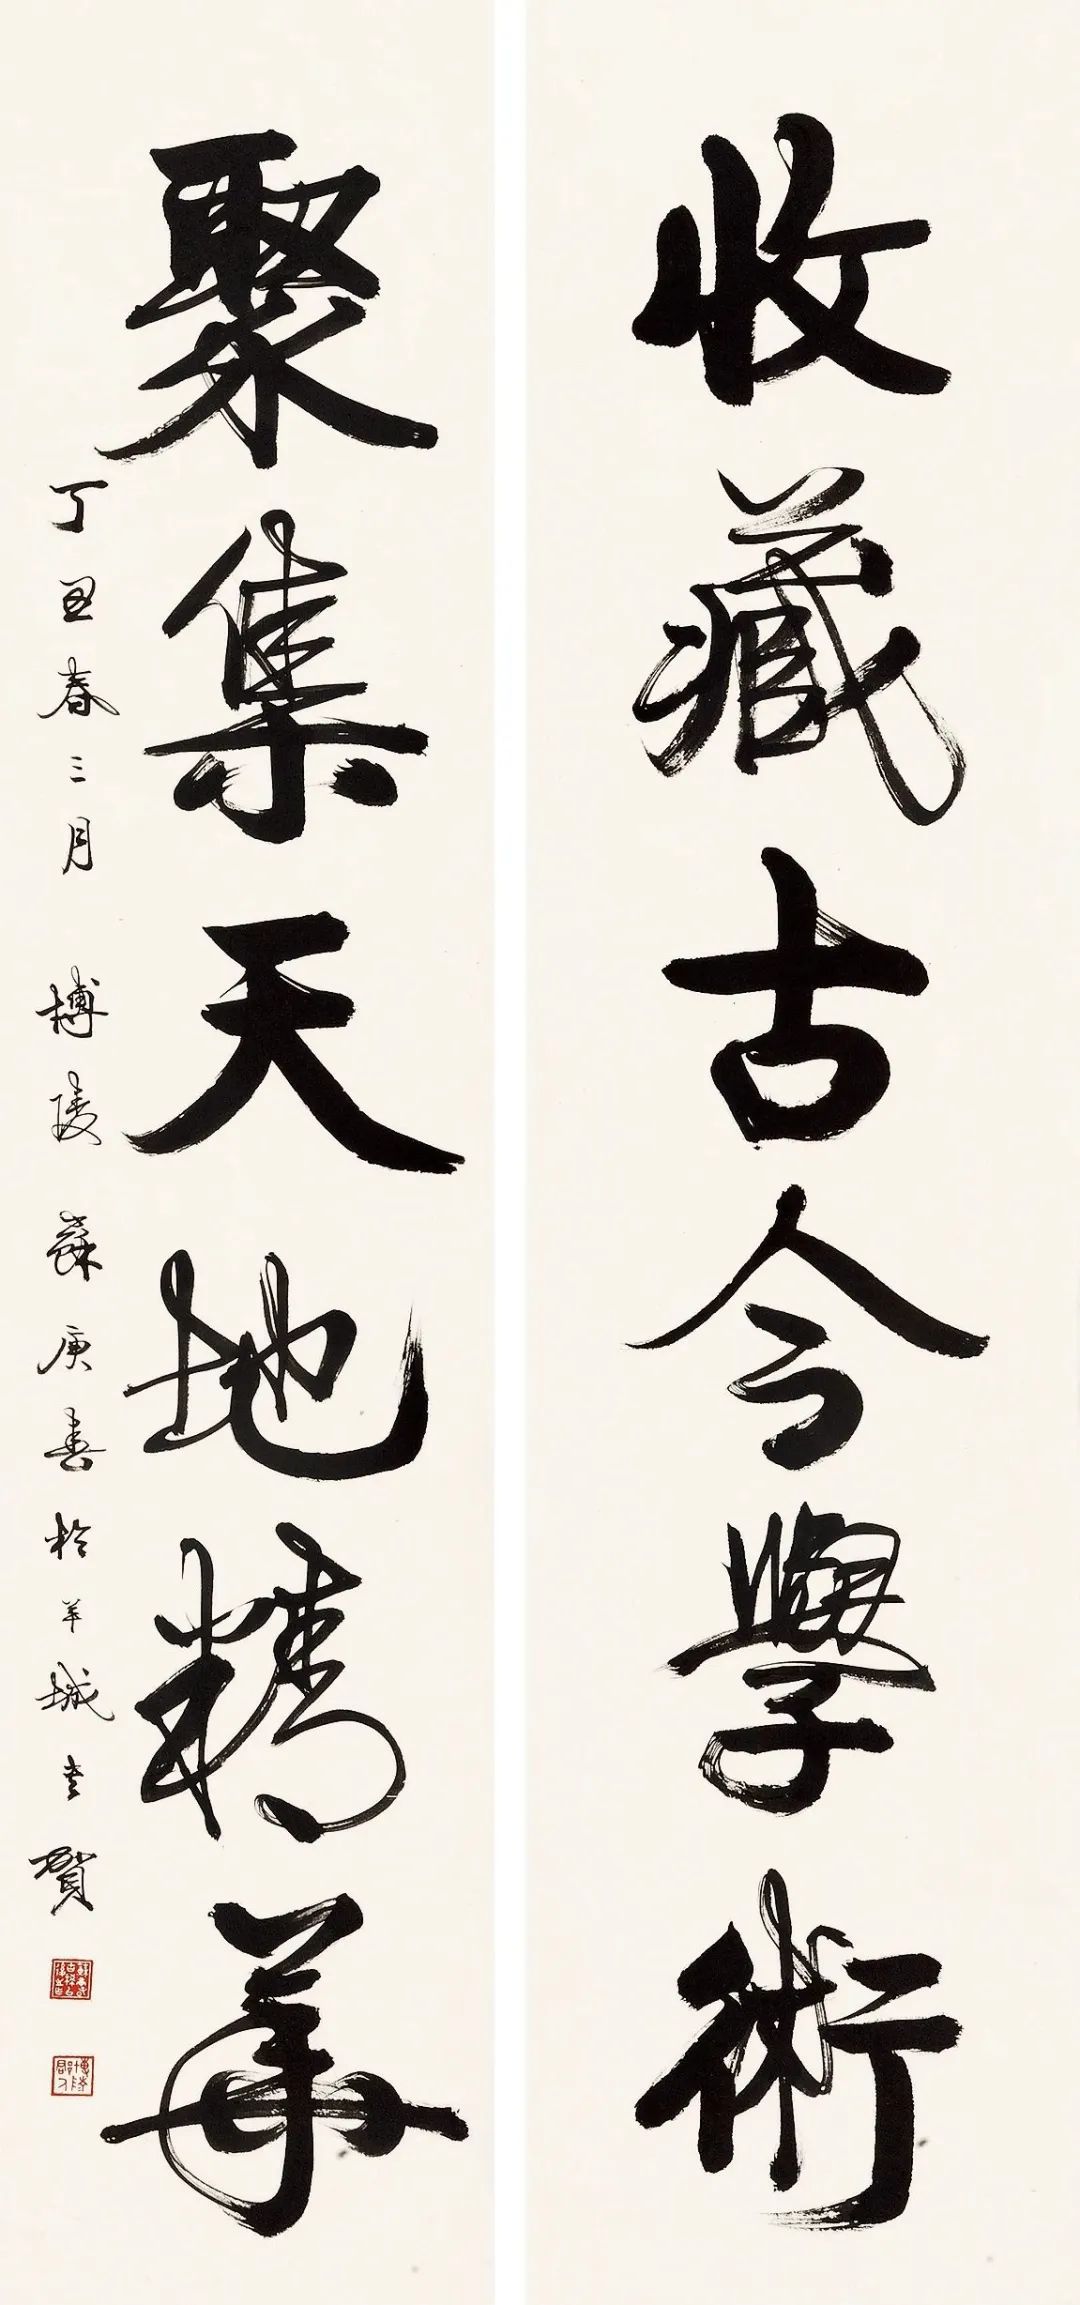 收藏古今學術
聚集天地精華
丁丑春三月 博陵蘇庚春於羊城書賀